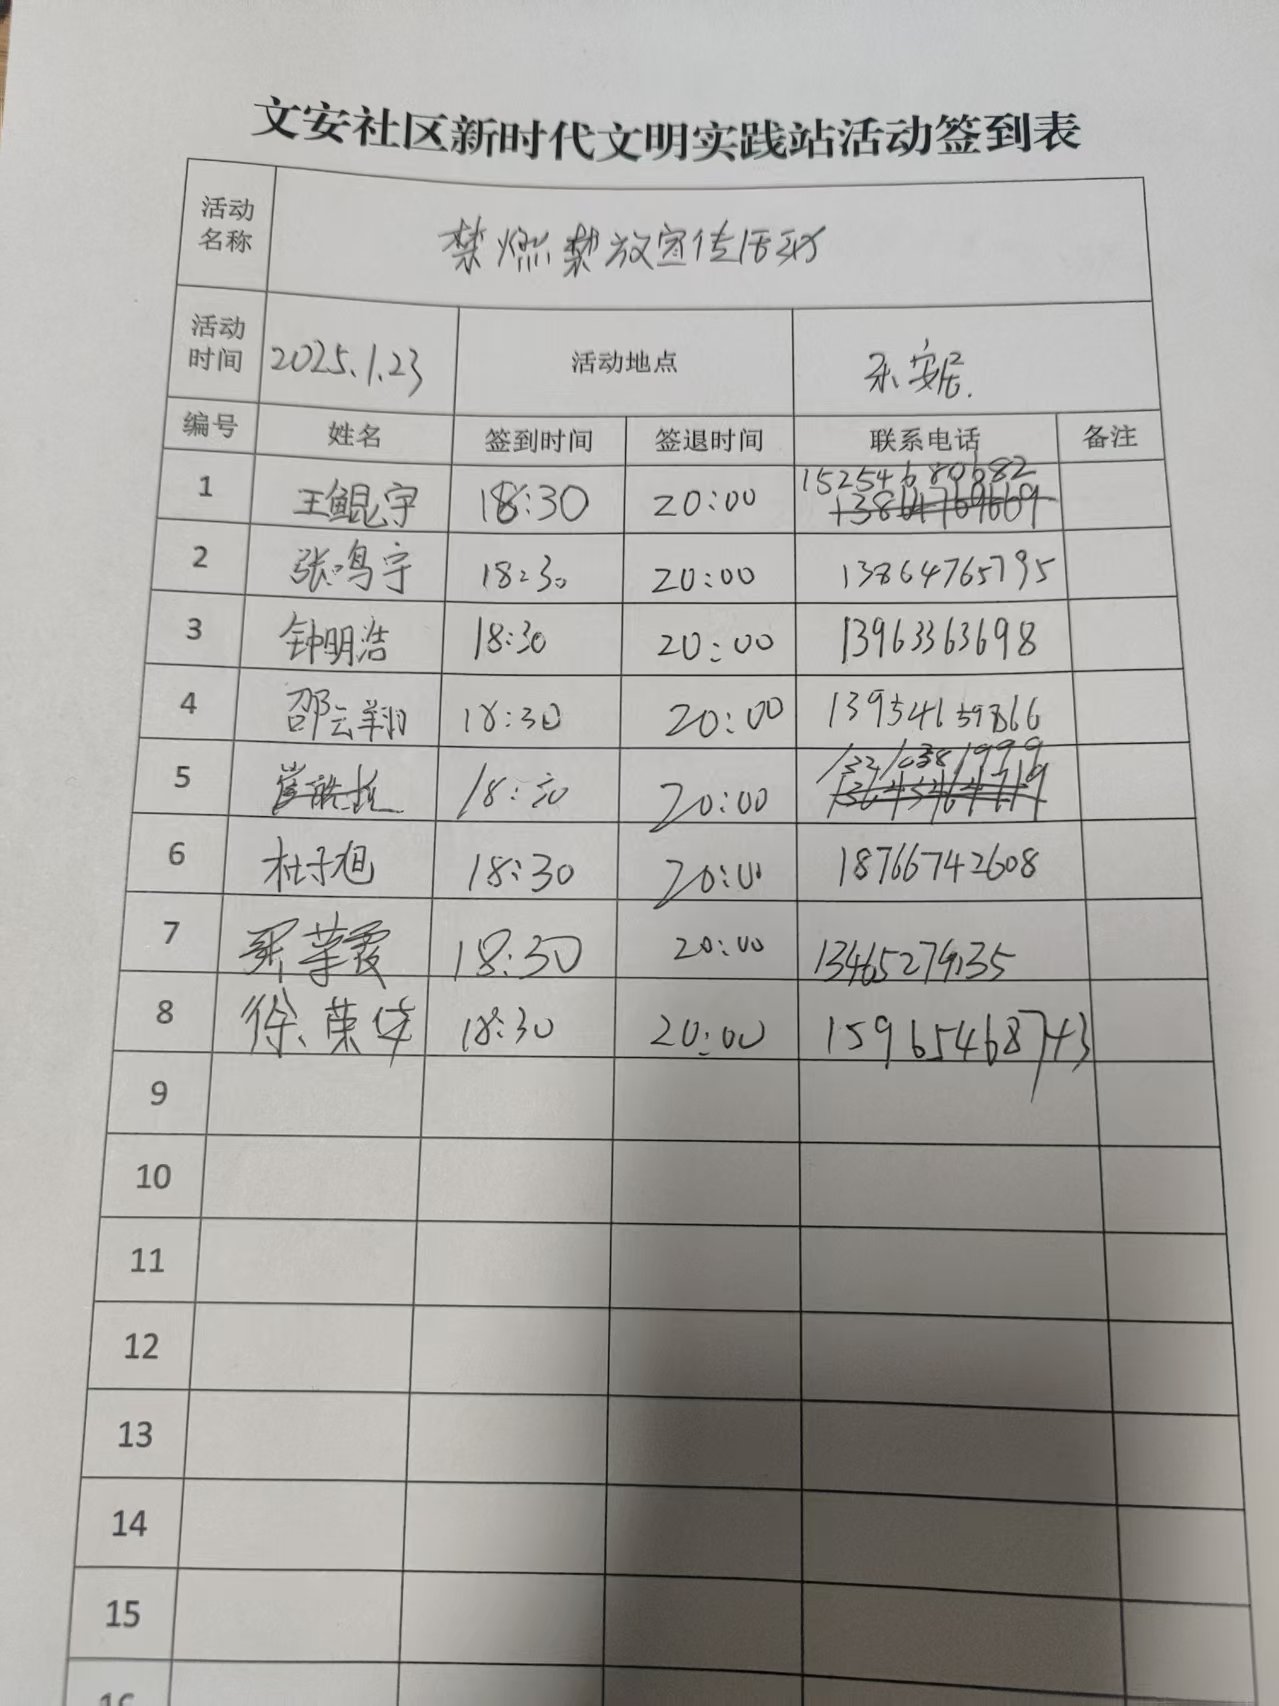 文安社区新时代文明实践站活动签到表
活动名称 禁燃禁放宣传活动
活动时间 2025.1.23 活动地点 永安居.
编号 姓名 签到时间 签退时间 联系电话 备注
1 王鲲宇 18:30 20:00 15254680682
2 张鸣宇 18:30 20:00 13864765795
3 钟明浩 18:30 20:00 13963363698
4 邵云翔 18:30 20:00 13954659866
5 18:30 20:00 13210381999
6 杜子旭 18:30 20:00 18766742608
7 18:30 20:00
8 徐荣华 18:30 20:00 15965468743
9
10
11
12
13
14
15
16